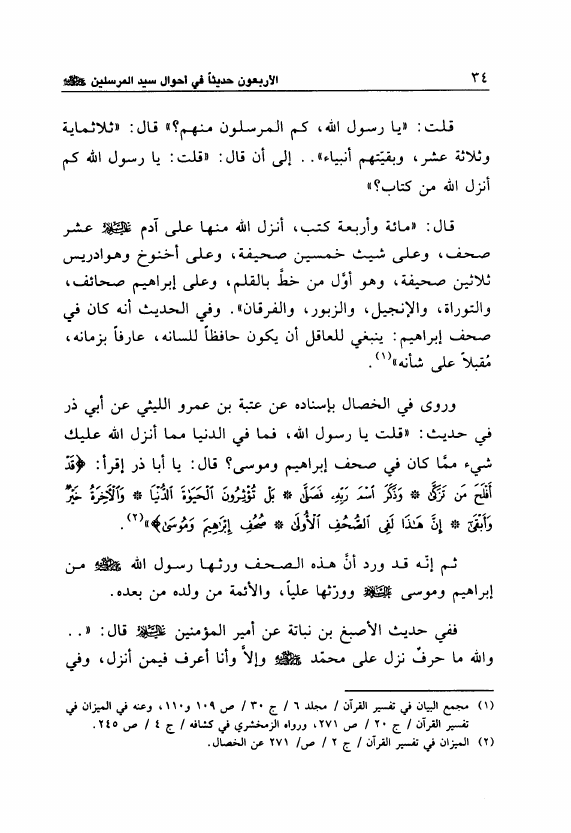 ٣٤ الأربعون حديثاً في أحوال سيد المرسلين ﷺ
قلت: «يا رسول الله، كم المرسلون منهم؟» قال: «ثلاثماية
وثلاثة عشر، وبقيّتهم أنبياء».. إلى أن قال: «قلت: يا رسول الله كم
أنزل الله من كتاب؟»
قال: «مائة وأربعة كتب، أنزل الله منها على آدم عليه السلام عشر
صحف، وعلى شيث خمسين صحيفة، وعلى أخنوخ وهوادريس
ثلاثين صحيفة، وهو أوَّل من خطَّ بالقلم، وعلى إبراهيم صحائف،
والتوراة، والإنجيل، والزبور، والفرقان». وفي الحديث أنه كان في
صحف إبراهيم: ينبغي للعاقل أن يكون حافظاً للسانه، عارفاً بزمانه،
مُقبلاً على شأنه»(١).
وروى في الخصال بإسناده عن عتبة بن عمرو الليثي عن أبي ذر
في حديث: «قلت يا رسول الله، فما في الدنيا مما أنزل الله عليك
شيء ممَّا كان في صحف إبراهيم وموسى؟ قال: يا أبا ذر إقرأ: ﴿قَدْ
أَفْلَحَ مَن تَزَكَّىٰ * وَذَكَرَ اسْمَ رَبِّهِۦ فَصَلَّىٰ * بَلْ تُؤْثِرُونَ الْحَيَوٰةَ الدُّنْيَا * وَالْآخِرَةُ خَيْرٌ
وَأَبْقَىٰٓ * إِنَّ هَٰذَا لَفِى الصُّحُفِ الْأُولَىٰ * صُحُفِ إِبْرَٰهِيمَ وَمُوسَىٰ﴾»(٢).
ثم إنّه قد ورد أنَّ هذه الصحف ورثها رسول الله ﷺ من
إبراهيم وموسى عليه السلام وورّثها علياً، والأئمة من ولده من بعده.
ففي حديث الأصبغ بن نباتة عن أمير المؤمنين عليه السلام قال: «..
والله ما حرفٌ نزل على محمّد ﷺ وإلاَّ وأنا أعرف فيمن أنزل، وفي
(١) مجمع البيان في تفسير القرآن / مجلد ٦ / ج ٣٠ / ص ١٠٩ و١١٠، وعنه في الميزان في
تفسير القرآن / ج ٢٠ / ص ٢٧١، ورواه الزمخشري في كشافه / ج ٤ / ص ٢٤٥.
(٢) الميزان في تفسير القرآن / ج ٢ / ص/ ٢٧١ عن الخصال.